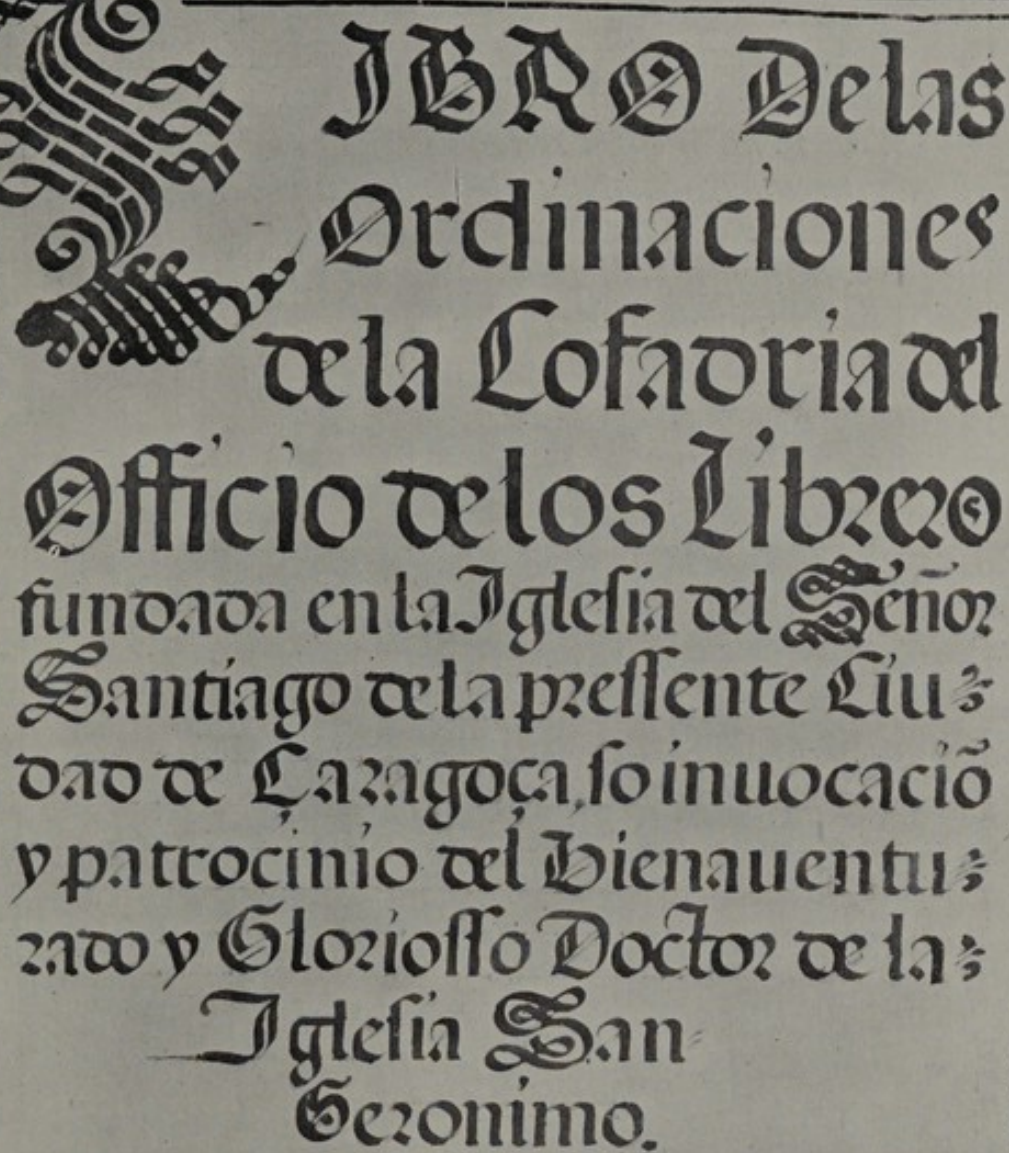 LIBRO De las
Ordinaciones
de la Cofadria del
Officio de los Libreros
fundada en la Iglesia del Señor
Santiago de la pressente Ciu⸗
dad de Caragoça, so inuocaciõ
y patrocinio del Bienauentu⸗
rado y Gloriosso Doctor de la⸗
Iglesia San
Geronimo.